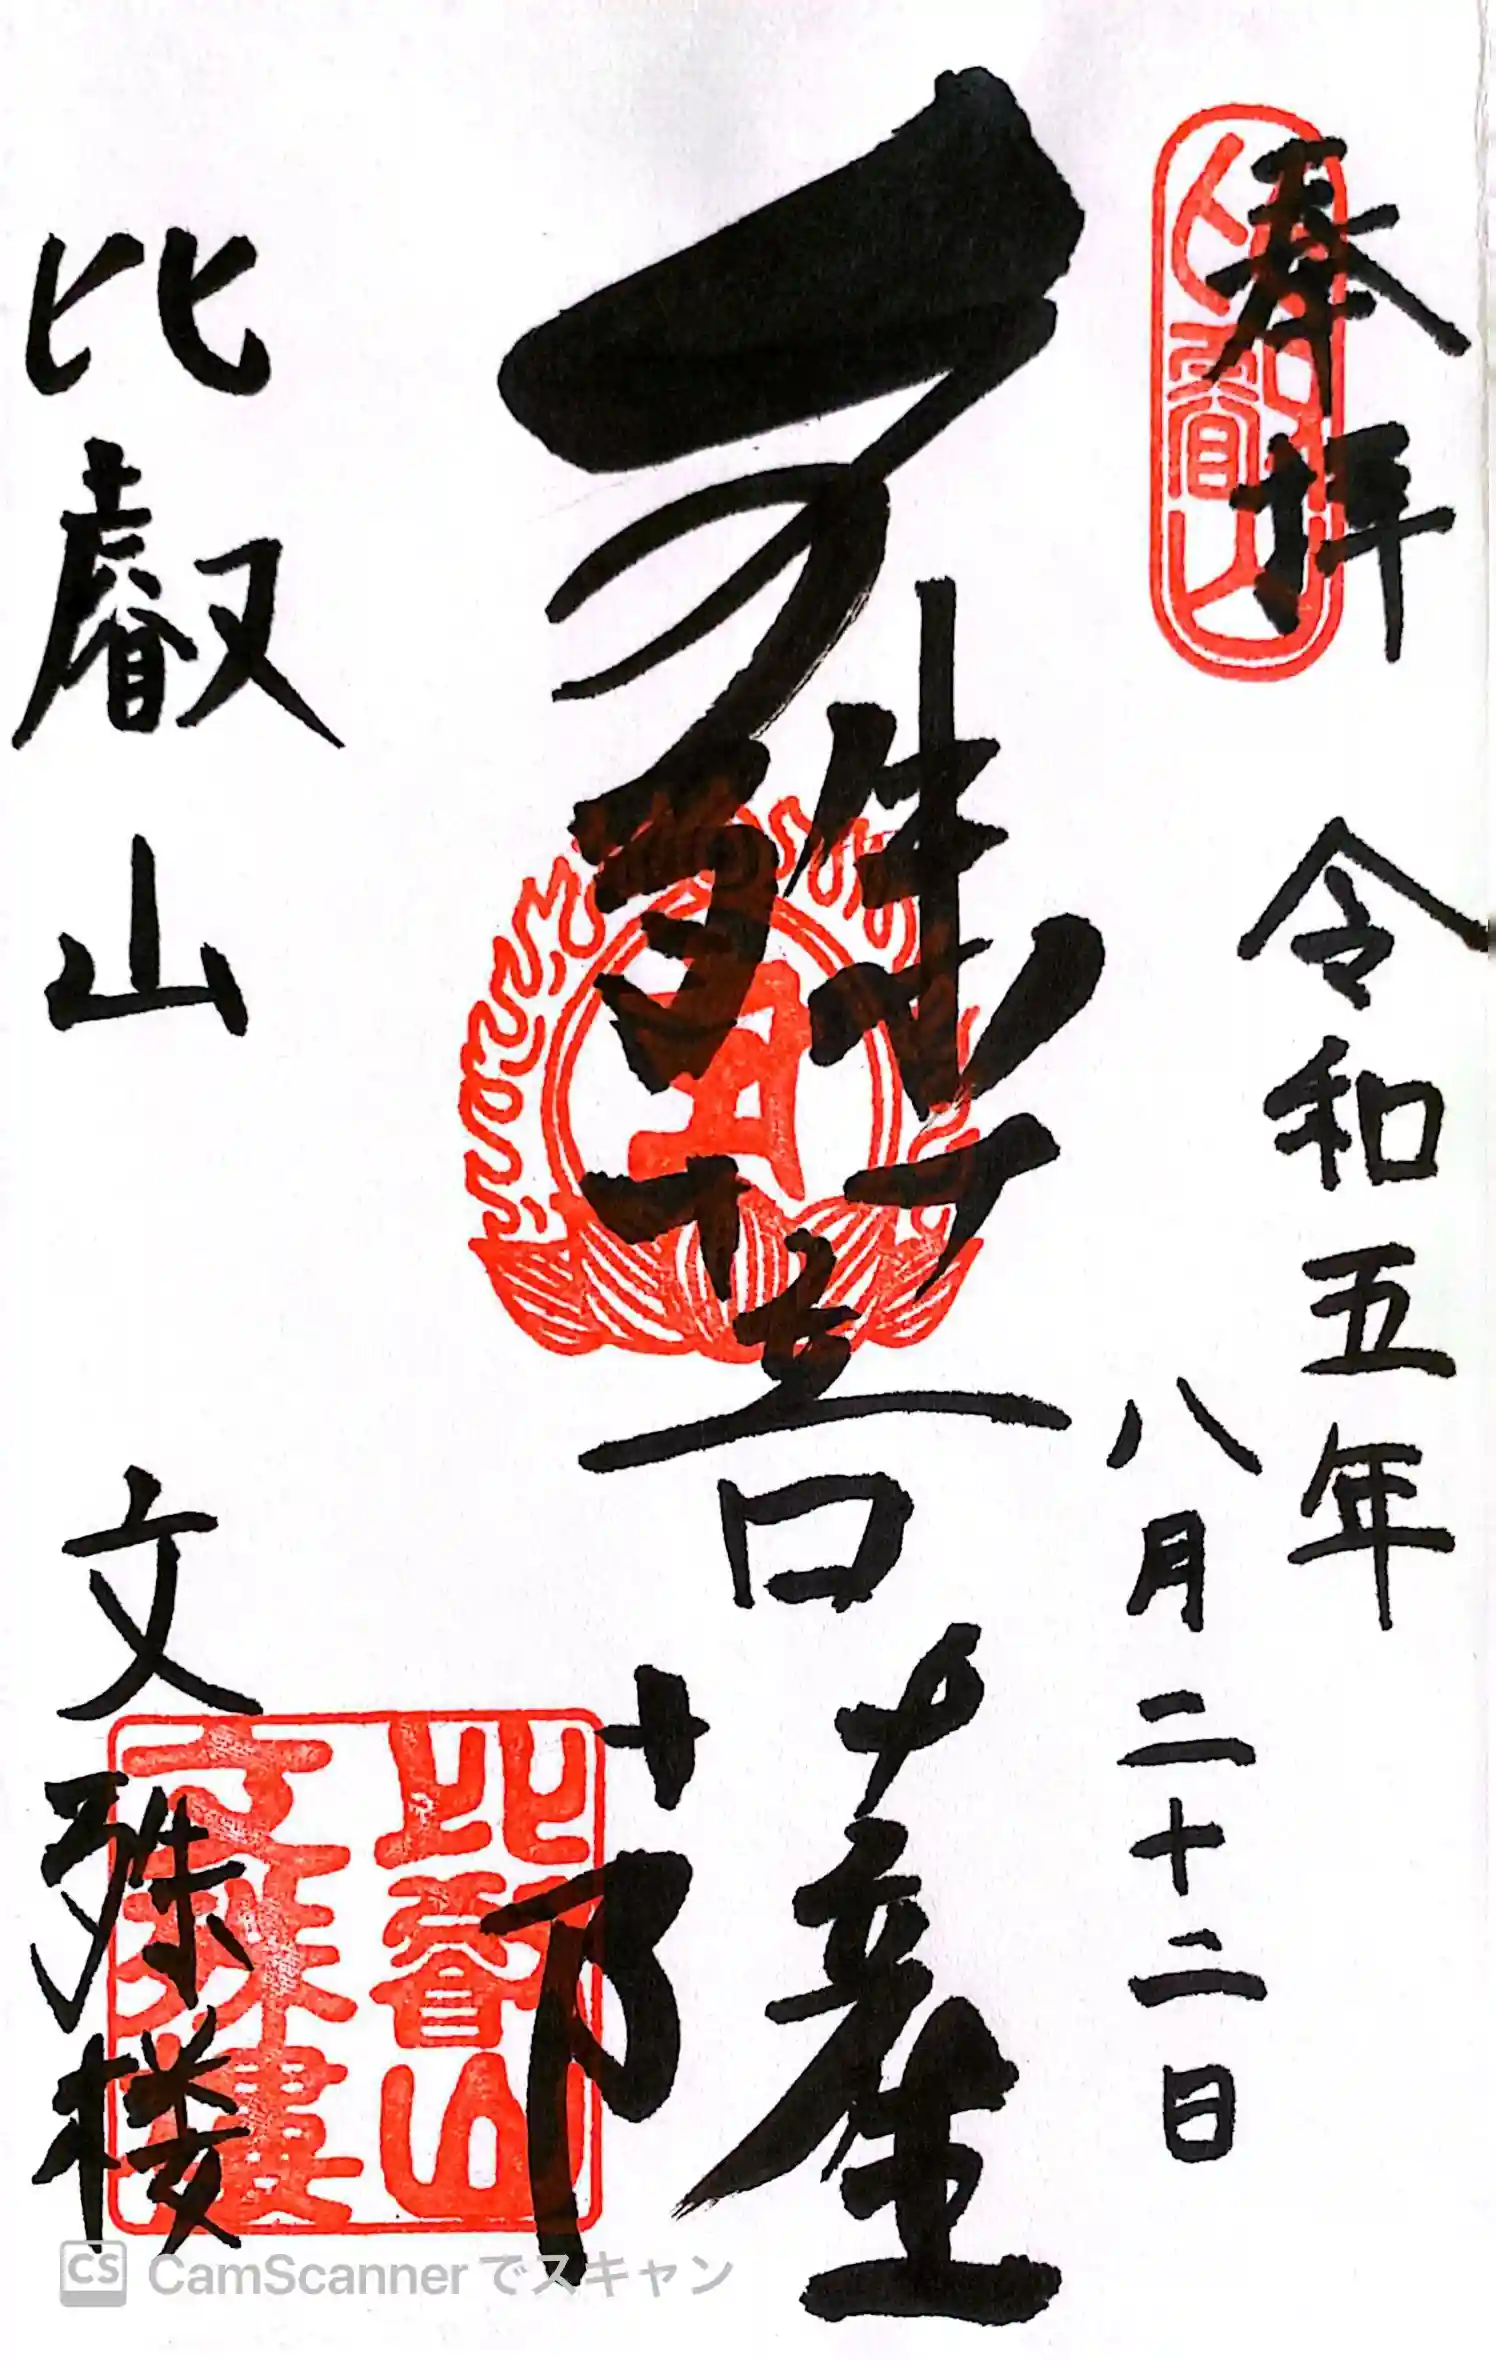 奉拝
令和五年
八月二十二日
文殊菩薩
比叡山
文殊楼
比叡山
文殊樓
CS CamScannerでスキャン